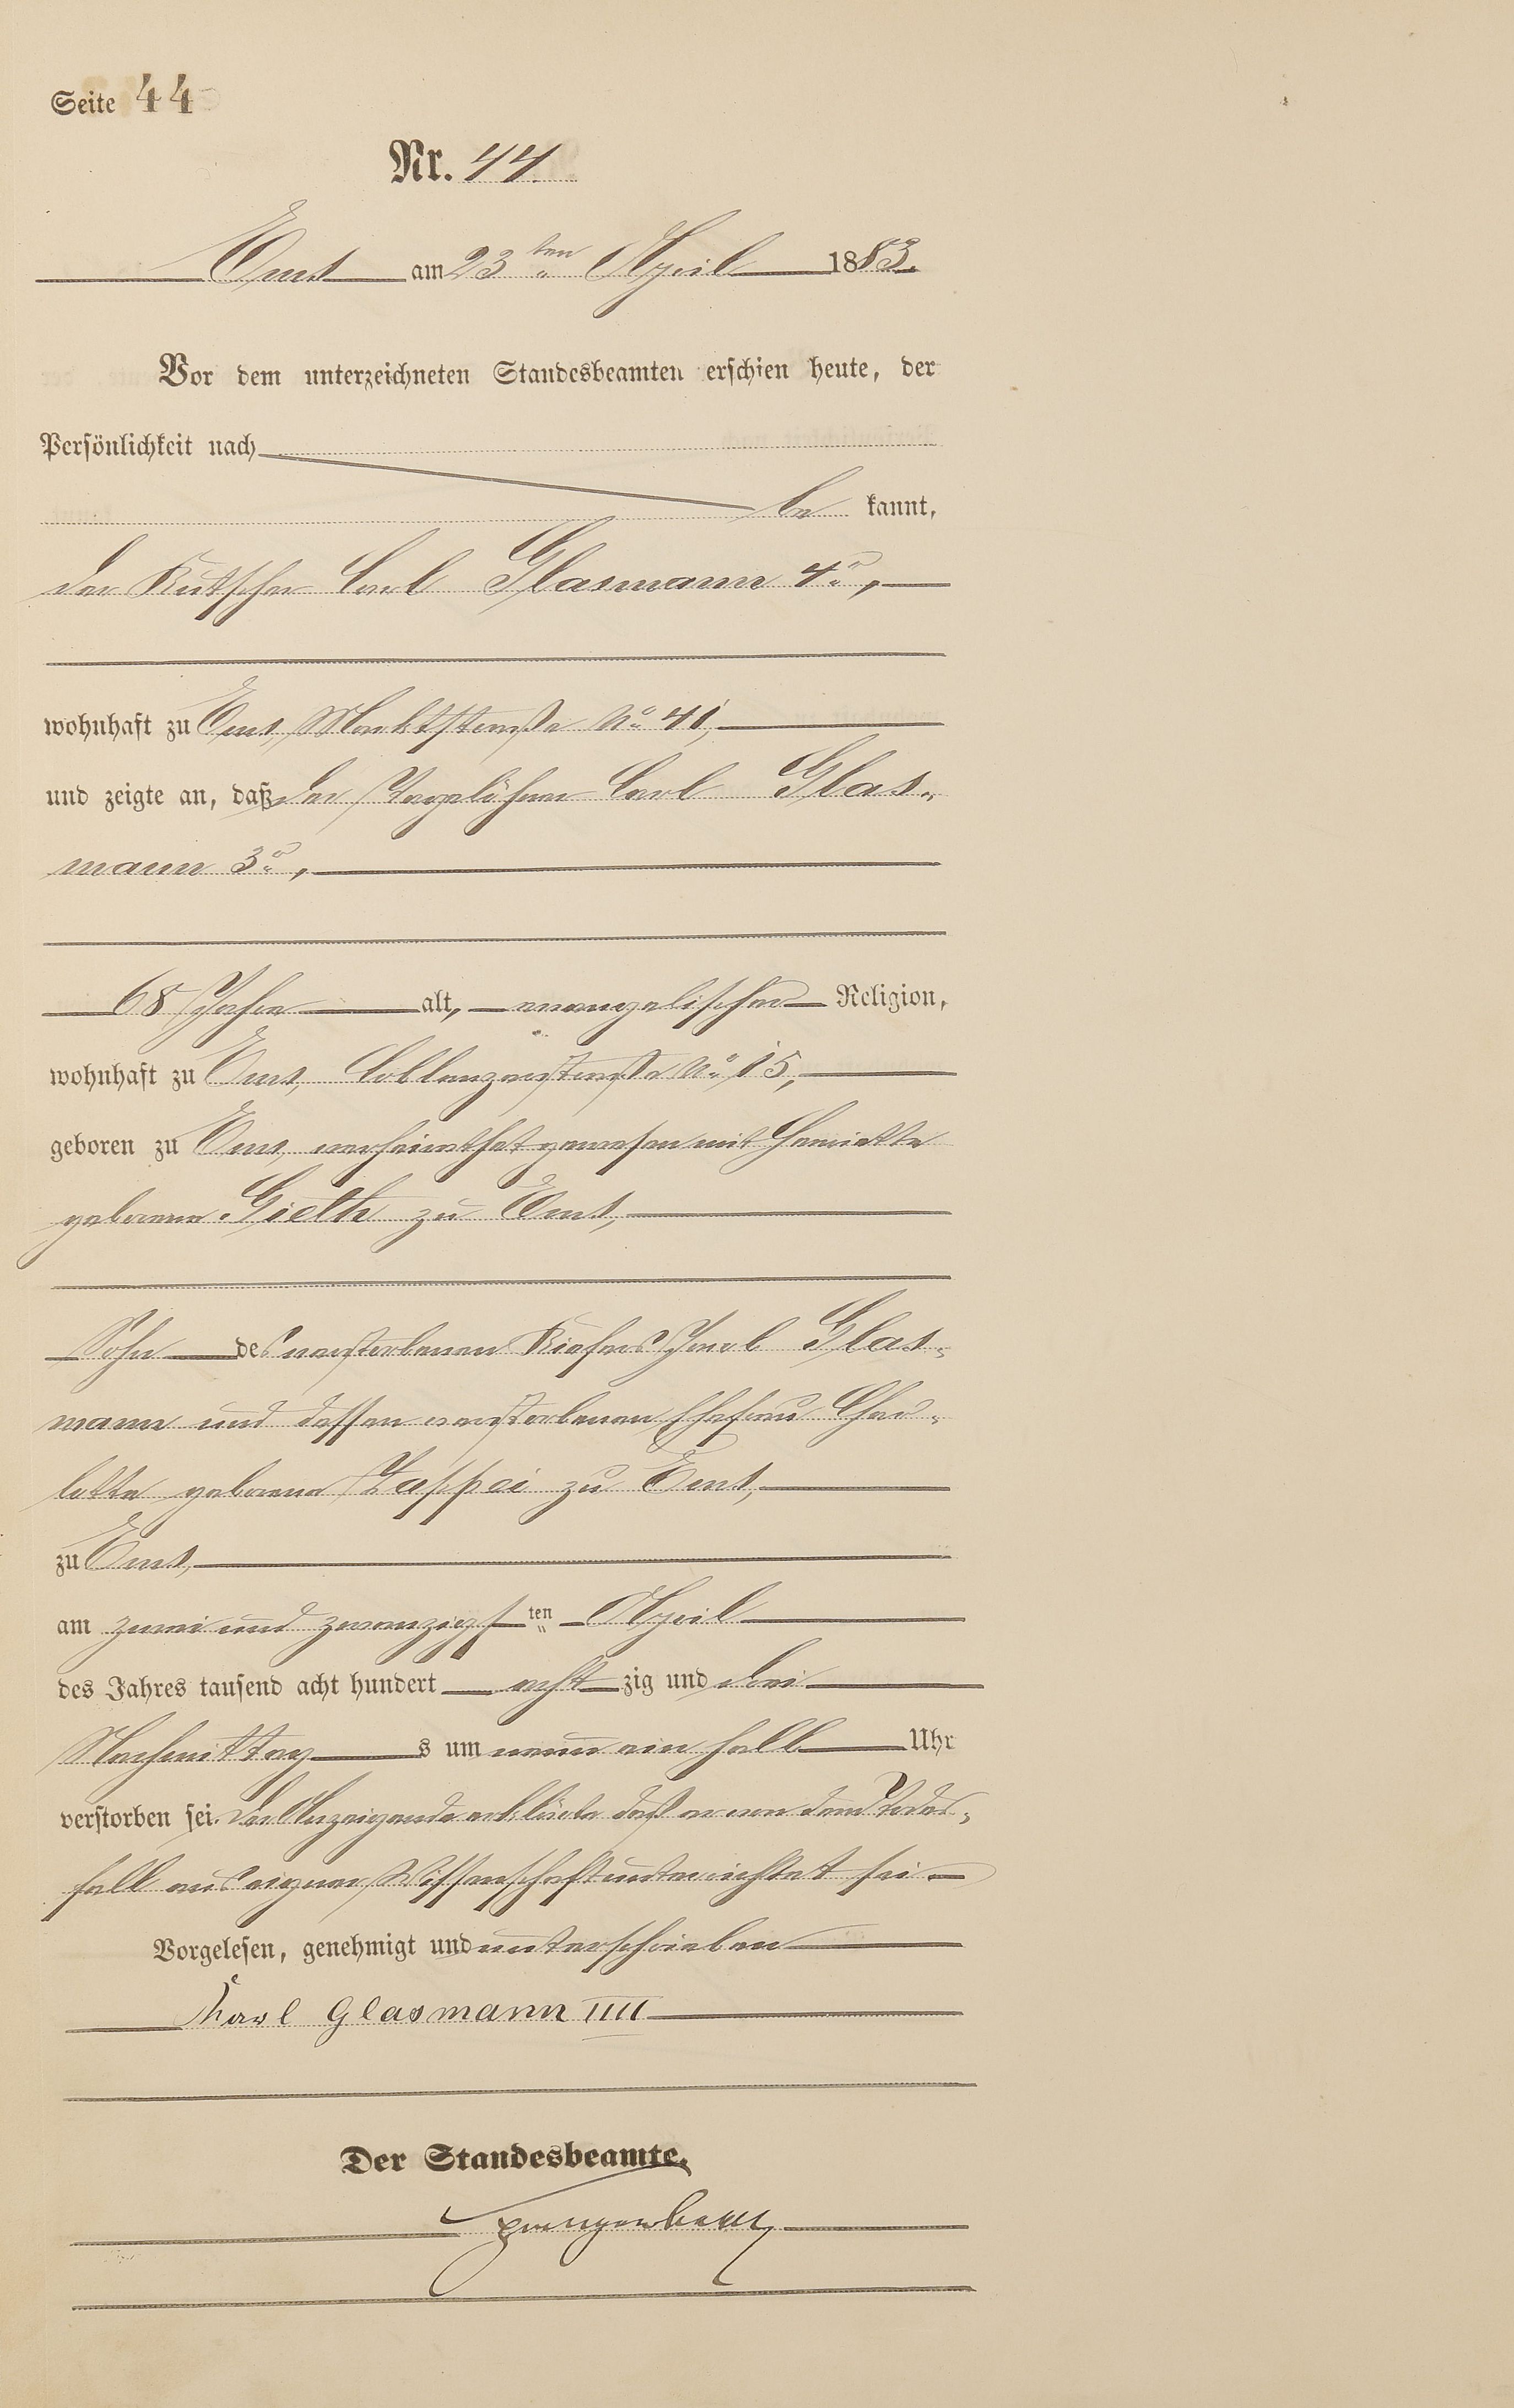 Seite 44
Nr. 44.
Ems am 23ten April 1883.
Vor dem unterzeichneten Standesbeamten erschien heute, der
Persönlichkeit nach
be kannt,
der Kutscher Carl Glasmann 4o,
wohnhaft zu Ems, Marktstraße No 41,
und zeigte an, daß der Tagelöhner Carl Glas-
mann 3o,
68 Jahre alt, evangelischer Religion,
wohnhaft zu Ems, Coblenzerstraße No 15,
geboren zu Ems, verheirathet gewesen mit Henriette
geborene Gieth zu Ems,
Sohn des verstorbenen Kiefers Jacob Glas-
mann und dessen verstorbenen Ehefrau Char-
lotte geborene zu Ems,
zu Ems,
am zwei und zwanzigsten April
des Jahres tausend acht hundert achtzig und drei
Nachmittags um neun ein halb Uhr
verstorben sei. Der Anzeigende erklärte daß er von dem Todes-
fall aus eigner Wissenschaft unterrichtet sei
Vorgelesen, genehmigt und unterschrieben
Karl Glasmann IIII
Der Standesbeamte.